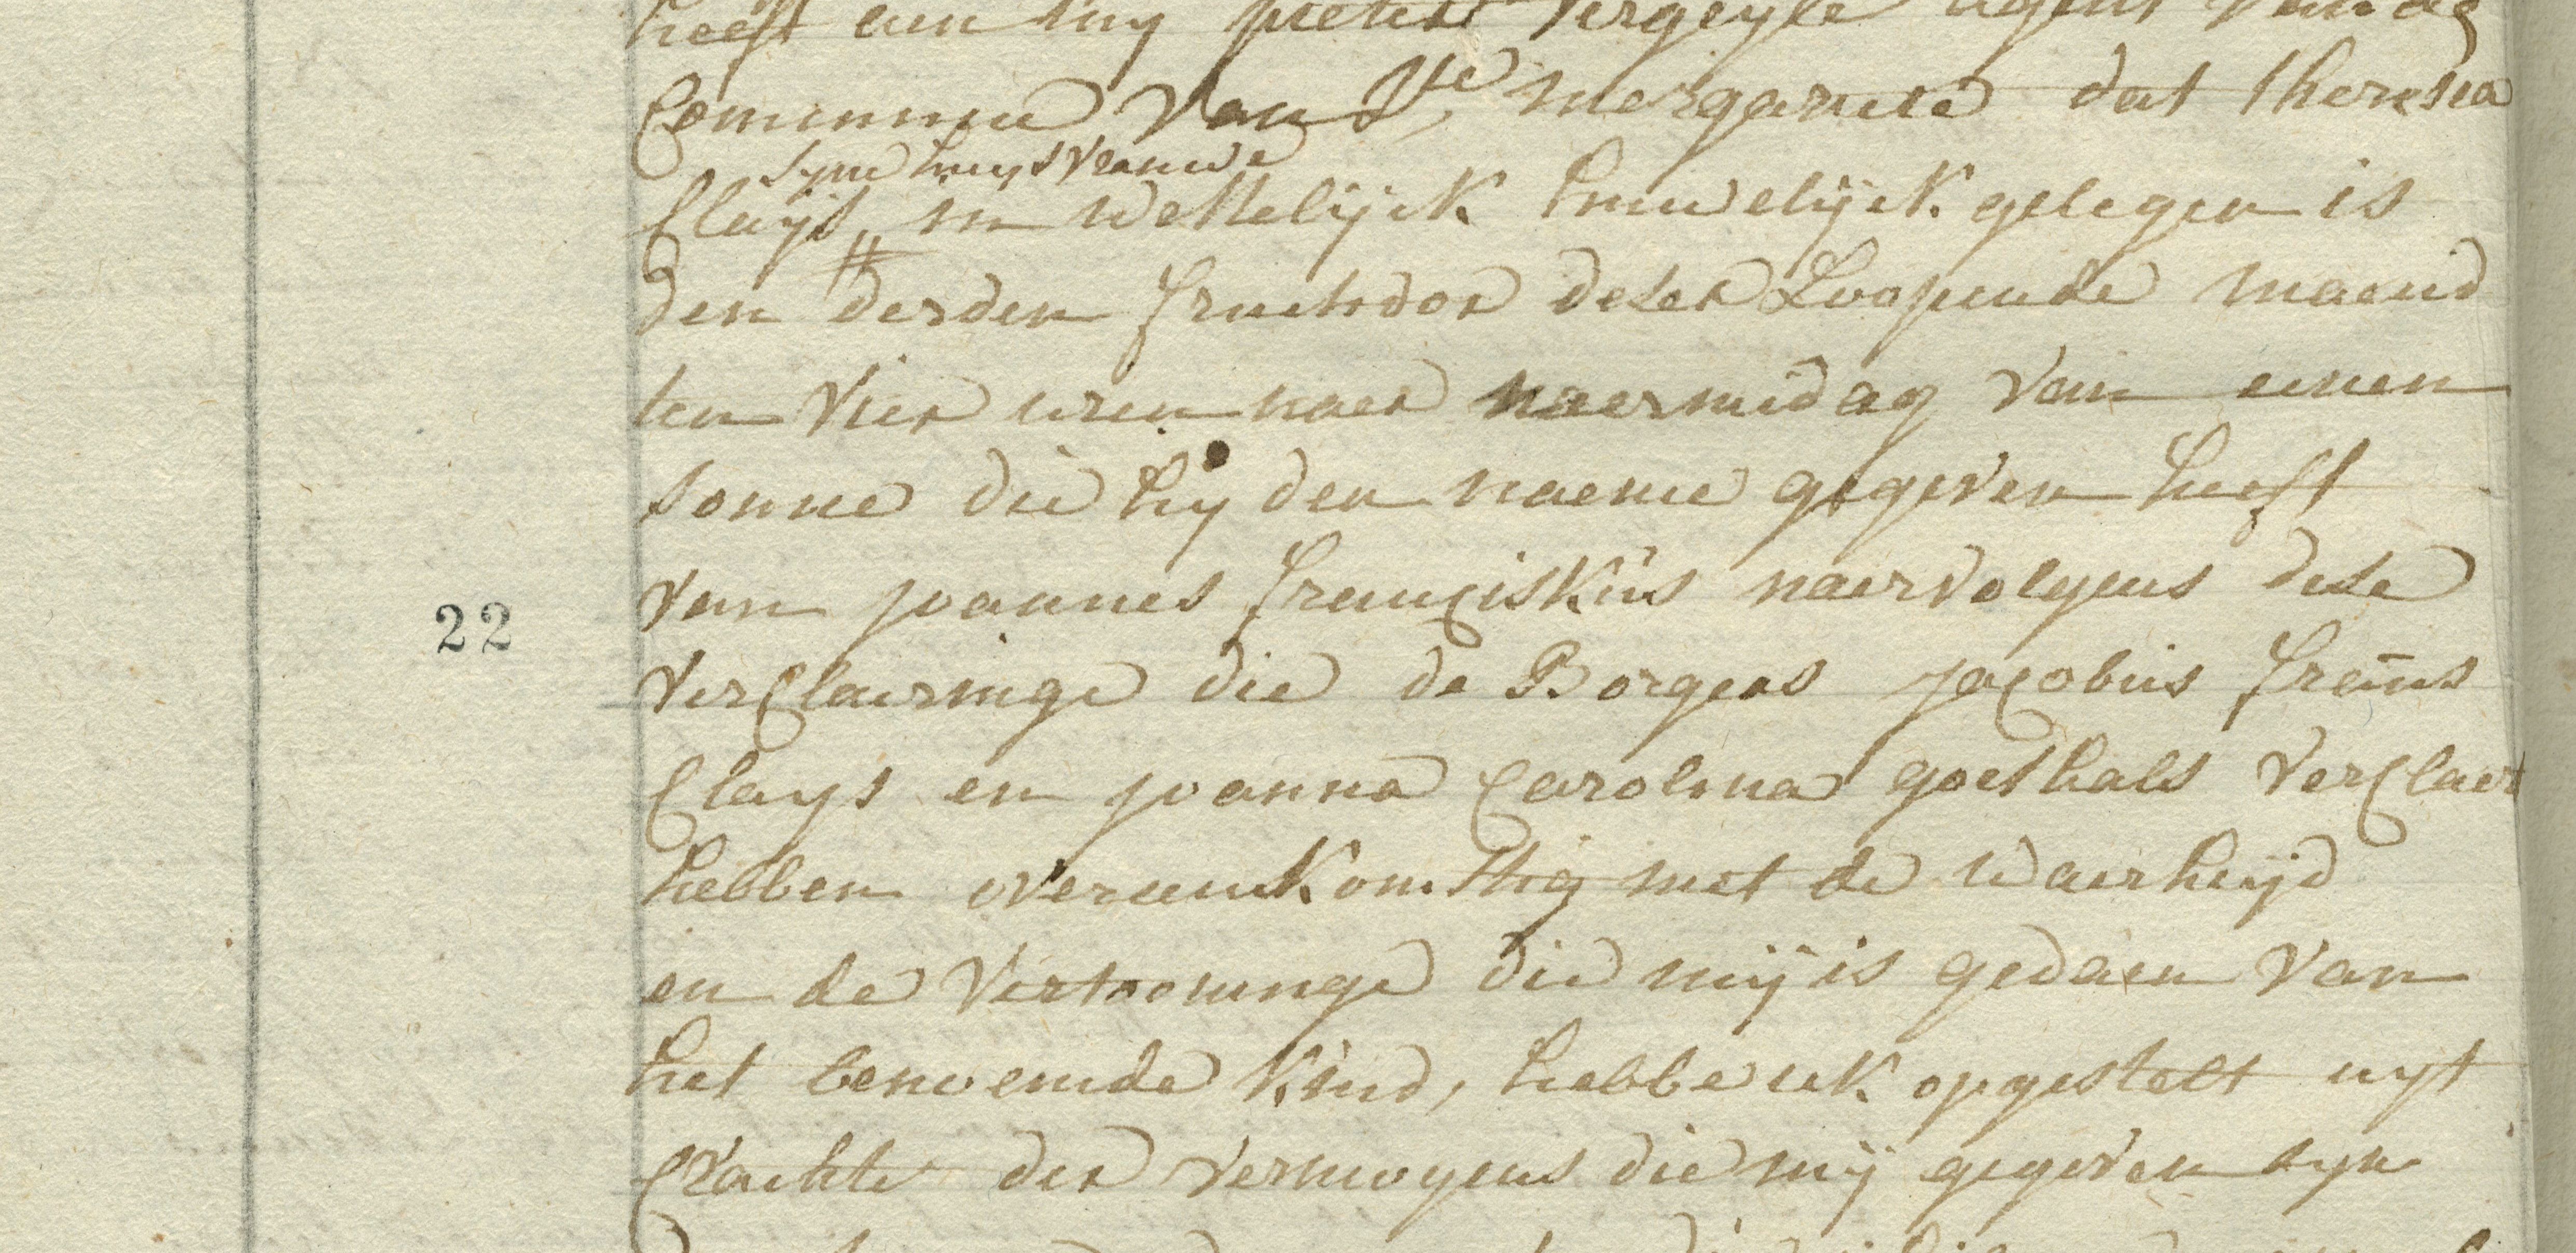 heeft aen my pieter Vergeyle agent van de
Commune Van Ste mergariete dat theresia
syne huysvrauwe
Claijs // in wettelijck huuwelijck gelegen is
den derden fructidor deser Loopende maend
ten vier uren naer naermidag van eenen
sonne die hy den naeme gegeven heeft
van joannes franciskus naervolgens dese
verclaeringe die de Borgers jacobus frans
Clays en joanna Carolina goethals verclaert
hebben overeenkomstig met de waerheijd
en de vertooninge die mij is gedaen van
het benoemde kind, hebbe ick opgestelt uyt
crachte der vermogens die mij gegeven syn
22